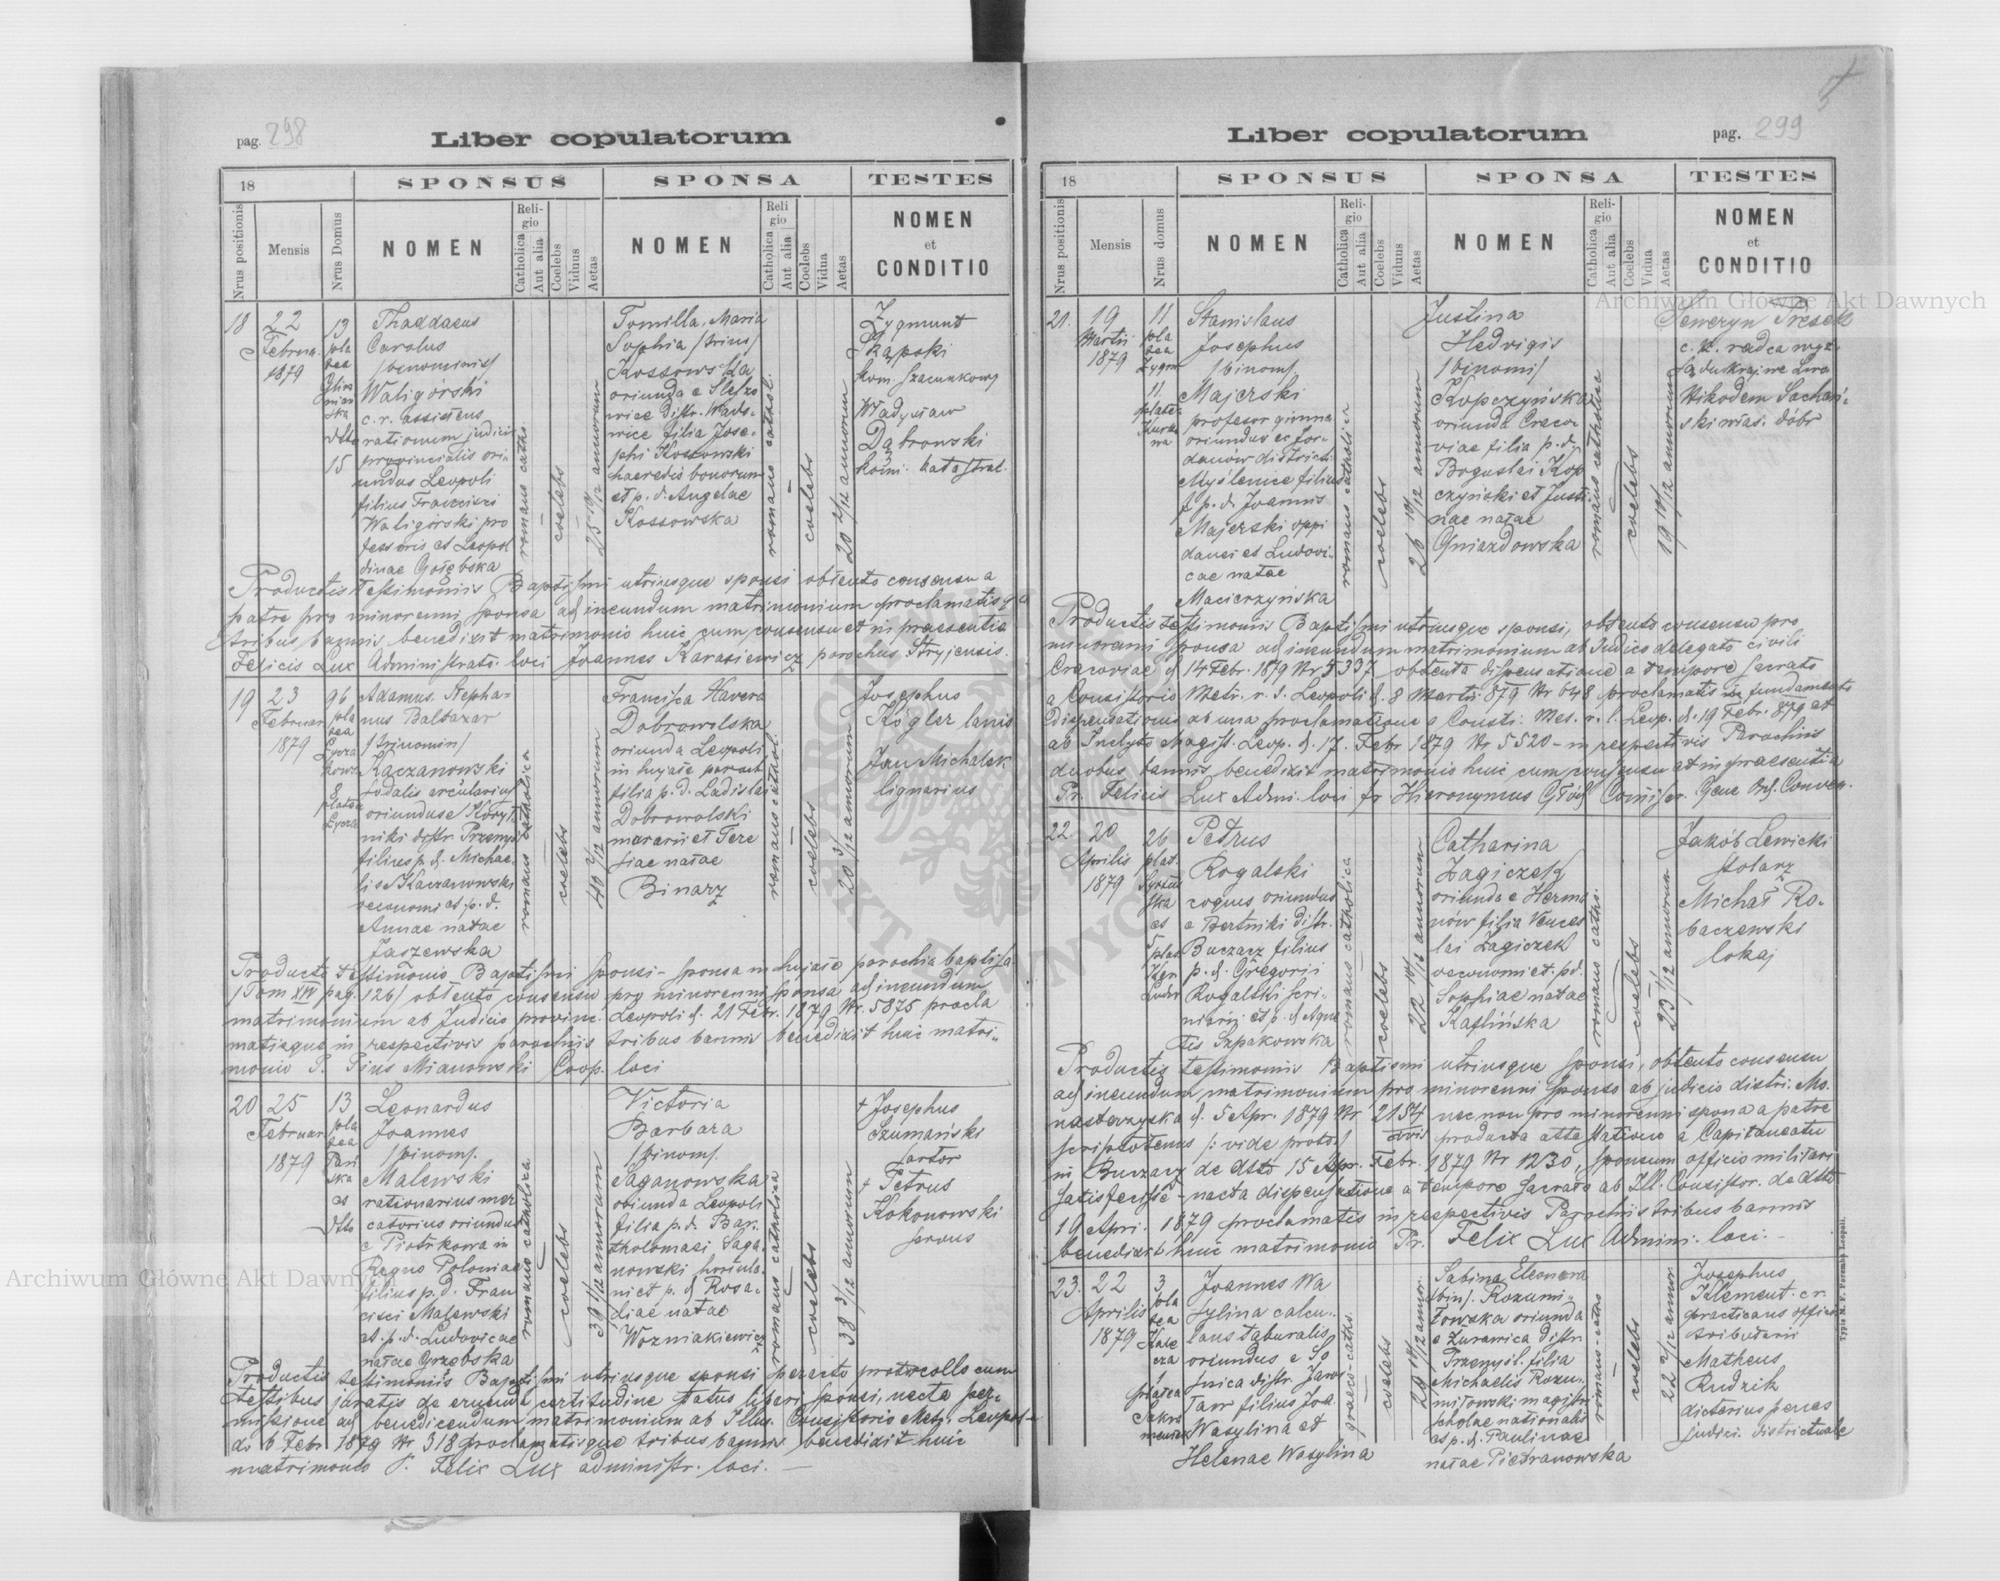 pag. 298
Liber copulatorum
18
SPONSUS
SPONSA
TESTES
Nrus positionis
Mensis
Nrus Domus
NOMEN
Religio
Catholica
Aut alia
Coelebs
Viduus
Aetas
NOMEN
Religio
Catholica
Aut alia
Coelebs
Vidua
Aetas
NOMEN
et
CONDITIO
18
22
Februa.
1879
13
pla
tea
15
Thaddaeus
Carolus
Waligórski
c. r. assistens
rationum judicii
provincialis ori-
undus Leopoli
filius Francisci
Waligórski pro
fessoris et Leopol
dinae Gołębska
romano cathol.
coelebs
Tomilla, Maria
Sophia /trino/
Kossowska
oriunda e
filia Jose-
phi Kossowski
haeredis bonorum
et p. d. Angelae
Kossowska
romano cathol.
coelebs
Zygmunt
Skąpski
kom. szacunkowy
Władysław
Dąbrowski
kom. katastral.
Productis Testimoniis Baptismi utriusque sponsi obtento consensu a
patre pro minorenni sponsa ad ineundum matrimonium proclamatisque
tribus bannis benedixit matrimonio huic cum consensu et in praesentia
Felicis Lux Administrato. loci Joannes Karasiewicz parochus Stryjensis.
19
23
Februar
1879
96
pla
tea
8
platea
Adamus. Stepha-
nus Baltazar
/trinomin/
Kaczanowski
sodalis arcularius
filius p. d. Michae-
lis Kaczanowski
oeconomi et p. d.
Annae natae
Jaszewska
romano catholica
coelebs
40 2/12 annorum
Francisca Xavera
Dobrowolska
oriunda Leopoli
in hujate paroch
filia p. d. Ladislai
Dobrowolski
murarii et Tere
siae natae
Binarz
romano cathol.
coelebs
20 3/12 annorum
Josephus
Kögler lanis
Jan Michalek
lignarius
Producto testimonio Baptismi sponsi - sponsa in hujate parochia baptisa
/Tom XIV pag. 126/ obtento consensu pro minorenni sponsa ad ineundum
matrimonium ab Judicio provinc. Leopoli d. 21 Febr. 1879 Nr. 5875 procla
matisque in respectivis parochiis tribus bannis benedixit huic matri-
monio P. Pius Mianowski Coop. loci
20
25
Februar
1879
13
pla
tea
et
dtto
Leonardus
Joannes
/binom/.
Malewski
rationarius mer
catorius oriundus
e Piotrkowa in
Regno Poloniae
filius p. d. Fran
cisci Malewski
et p. d. Ludovicae
natae Grzębska
romano catholica
coelebs
39 1/12 annorum
Victoria
Barbara
/binom/.
Saganowska
oriunda Leopoli
filia p. d. Bar-
tholomaei Saga-
nowski
et p. d. Rosa-
liae natae
Wozniakiewicz
romano catholica
coelebs
38 3/12 annorum
+ Josephus
Szumański
sartor
+ Petrus
Kokonowski
servus
Productis testimoniis Baptismi utriusque sponsi peracto protocollo cum
testibus juratis de eruenda certitudine status liberi sponsi, nacta per-
missione ad benedicendum matrimonium ab Illm. Consistorio Metr. Leopol-
d. 6 Febr 1879 Nr 318 proclamatisque tribus bannis benedixit huic
matrimonio P. Felix Lux administr. loci. —
Liber copulatorum
pag. 299
18
SPONSUS
SPONSA
TESTES
Nrus positionis
Mensis
Nrus domus
NOMEN
Religio
Catholica
Aut alia
Coelebs
Viduus
Aetas
NOMEN
Religio
Catholica
Aut alia
Coelebs
Vidua
Aetas
NOMEN
et
CONDITIO
Archiwum Główne Akt Dawnych
21.
19
Martii
1879
11
pla
tea
11
platea
Stanislaus
Josephus
/binom/.
Majerski
profesor gimna
oriundus ex Jor-
danów districti
Myślenice filius
p. d. Joannis
Majerski oppi
dani et Ludovi-
cae natae
Macierzyńska
romano catholica
coelebs
26 10/12 annorum
Justina
Hedvigis
/binomi/
Kopczyńska
oriunda Craco-
viae filia p. d.
Boguslai Kop
czyński et Justi
nae natae
Gniazdowska
romano catholica
coelebs
19 10/12 annorum
Seweryn
c. k. radca wyż.
Nikodem
ski właś. dóbr
Productis testimoniis Baptismi utriusque sponsi, obtento consensu pro
minorenni sponsa ad ineundum matrimonium ab Judico delegato civili
Cracoviae d 14 Febr. 1879 Nr 5337 obtenta dispensatione a tempore sacrato
a Consistorio Metr. r. l. Leopoli d. 8 Martii 879 Nr 648 proclamatis in fundamento
dispensationis ab una proclamatione a Consist. Met. r. l. Leop. d. 19 Febr. 879 et
ab Inclyto Magist. Leop. d. 17. Febr 1879 Nr 5520 - in respectivis Parochiis
duobus bannis benedixit matrimonio huic cum consensu et in praesentia
Pr. Felicis Lux Admi. loci fr Hieronymus
22.
20
Aprilis
1879
26
plat.
et
plat
Petrus
Rogalski
coquus oriundus
distr.
Buczacz filius
p. d. Gregorii
Rogalski
et p. d Agne
tis Szpakowska
romano catholica
coelebs
Catharina
Zagiczek
oriunda e Herma
nów filia Vences
lai Zagiczek
oeconomi et. p. d.
Sophiae natae
Kaflińska
romano cathol.
coelebs
Jakób Lewicki
stolarz
Michał Ro-
baczewski
lokaj
Productis testimoniis Baptismi utriusque sponsi, obtento consensu
ad ineundum matrimonium pro minorenni sponso ab judicio distri. Mo-
nasterzyska d. 5 Apr. 1879 Nr 2154 nec non pro minorenni sponsa a patre
scriptotenus /: vide protoc/ producta attestatione a Capitaneatu
in Buczacz de dtto 15 Febr. 1879 Nr 1230, sponsum officio militari
satisfecisse - nacta dispensatione a tempore sacrato ab Ill. Consistor. de dtto
19 Apri. 1879 proclamatis in respectivis Parochiis tribus bannis
benedixit huic matrimonio Pr. Felix Lux Admini. loci. -
23.
22
Aprilis
1879
3
pla
tea
1
platea
Sakra
mentek
Joannes Wa
sylina calcu-
lans tabularis
oriundus e
distr. Jawo
filius Joa.
Wasylina et
Helenae Wasylina
graeco-cathol.
coelebs
Sabina Eleonora
/bin/. Rozumi-
łowska oriunda
e Zurawica distr.
Przemyśl. filia
Michaelis Rozu-
miłowski magistri
scholae nationalis
et p. d. Paulinae
natae Pietranowska
romano catho
coelebs
22 2/12 annor
Josephus
Klement. cr.
practicans officii
tributarii
Matheus
Rudzik
dietarius penes
Judici. districtuale
Archiwum Główne Akt Dawnych